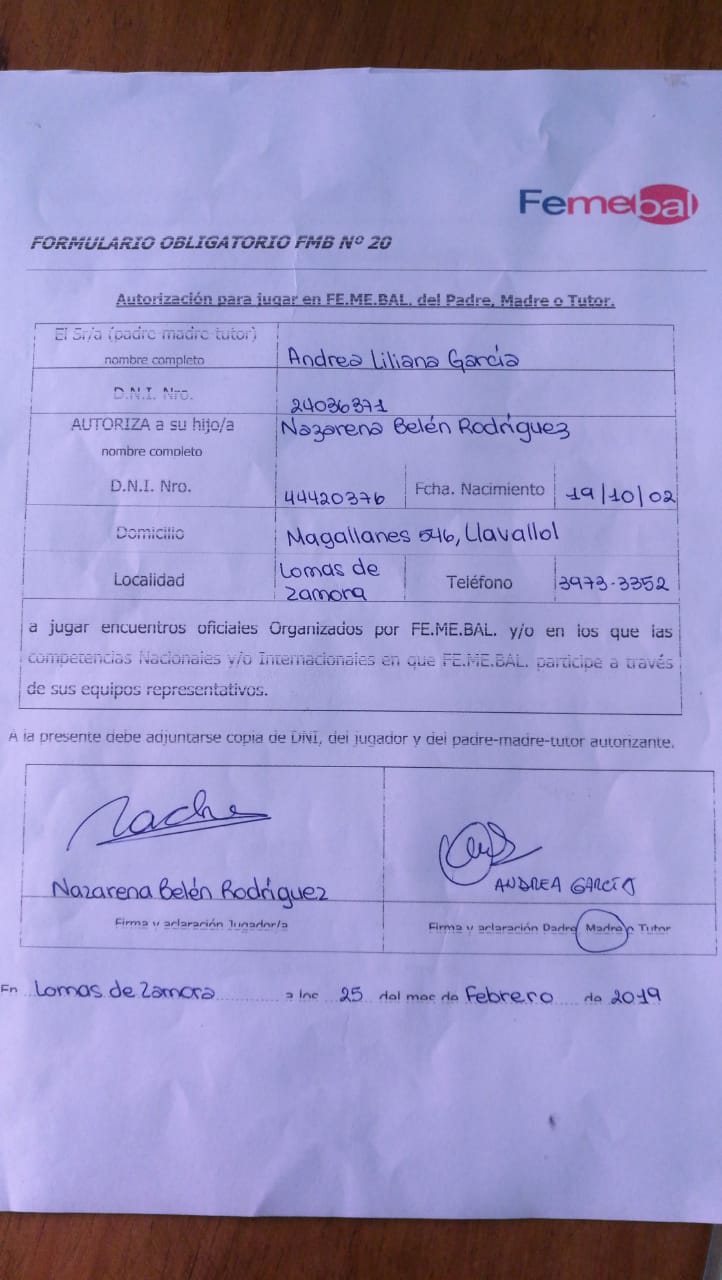 Femebal
FORMULARIO OBLIGATORIO FMB Nº 20
Autorización para jugar en FE.ME.BAL. del Padre, Madre o Tutor.
El Sr/a (padre madre tutor)
nombre completo
Andrea Liliana García
D.N.I. Nro.
24036371
AUTORIZA a su hijo/a
nombre completo
Nazarena Belén Rodríguez
D.N.I. Nro.
44420376
Fcha. Nacimiento
19/10/02
Domicilio
Magallanes 546, Llavallol
Localidad
Lomas de
Zamora
Teléfono
3973-3352
a jugar encuentros oficiales Organizados por FE.ME.BAL. y/o en los que las
competencias Nacionales y/o Internacionales en que FE.ME.BAL. participe a través
de sus equipos representativos.
A la presente debe adjuntarse copia de DNI, del jugador y del padre-madre-tutor autorizante.
Nazarena Belén Rodríguez
Firma y aclaración Jugador/a
ANDREA GARCÍA
Firma y aclaración Padre Madre o Tutor
En Lomas de Zamora a los 25 del mes de Febrero de 2019